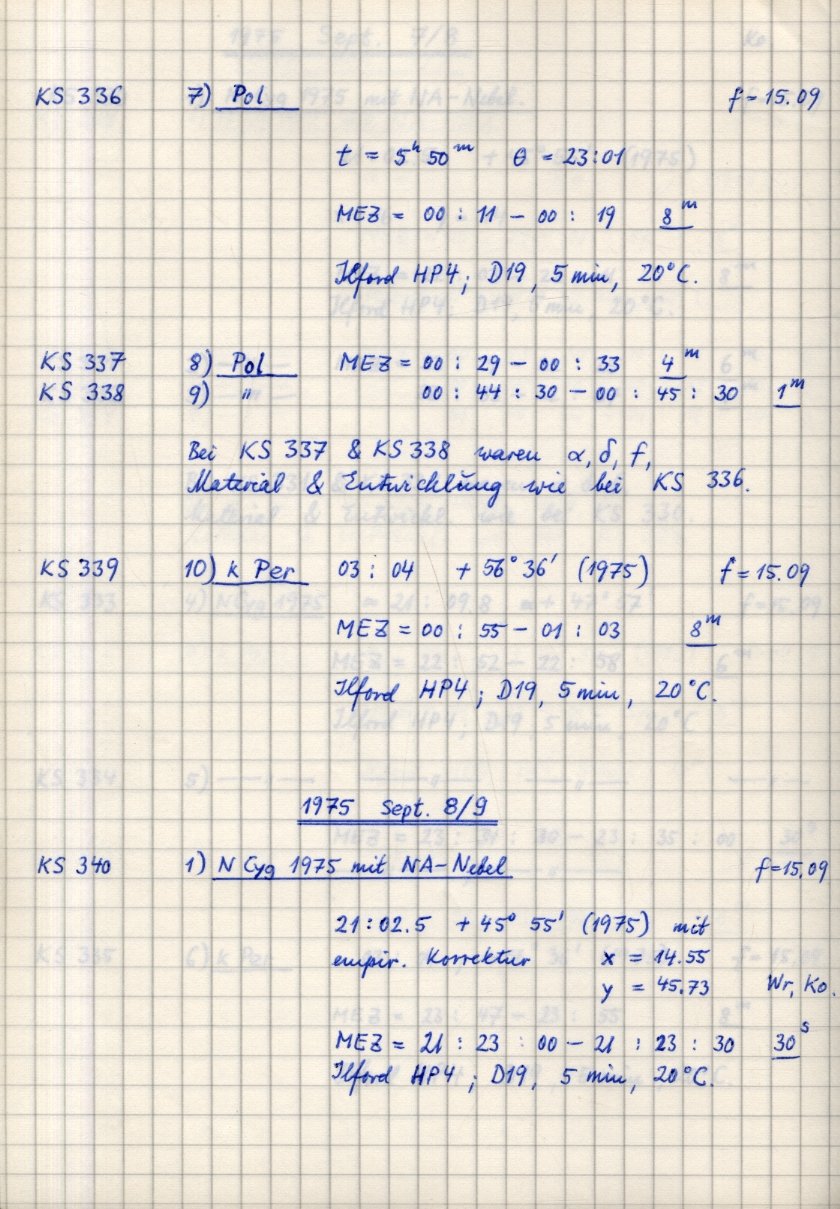 KS 336 7) Pol f = 15.09
t = 5ʰ 50ᵐ θ = 23:01
MEZ = 00 : 11 – 00 : 19 8ᵐ
Ilford HP4; D19, 5 min, 20°C.
KS 337 8) Pol MEZ = 00 : 29 – 00 : 33 4ᵐ
KS 338 9) " 00 : 44 : 30 – 00 : 45 : 30 1ᵐ
Bei KS 337 & KS 338 waren α, δ, f,
Material & Entwicklung wie bei KS 336.
KS 339 10) k Per 03 : 04 + 56° 36' (1975) f = 15.09
MEZ = 00 : 55 – 01 : 03 8ᵐ
Ilford HP4; D19, 5 min, 20°C.
1975 Sept. 8/9
KS 340 1) N Cyg 1975 mit NA-Nebel f = 15.09
21:02.5 + 45° 55' (1975) mit
empir. Korrektur x = 14.55
y = 45.73 Wr, Ko.
MEZ = 21 : 23 : 00 – 21 : 23 : 30 30ˢ
Ilford HP4; D19, 5 min, 20°C.